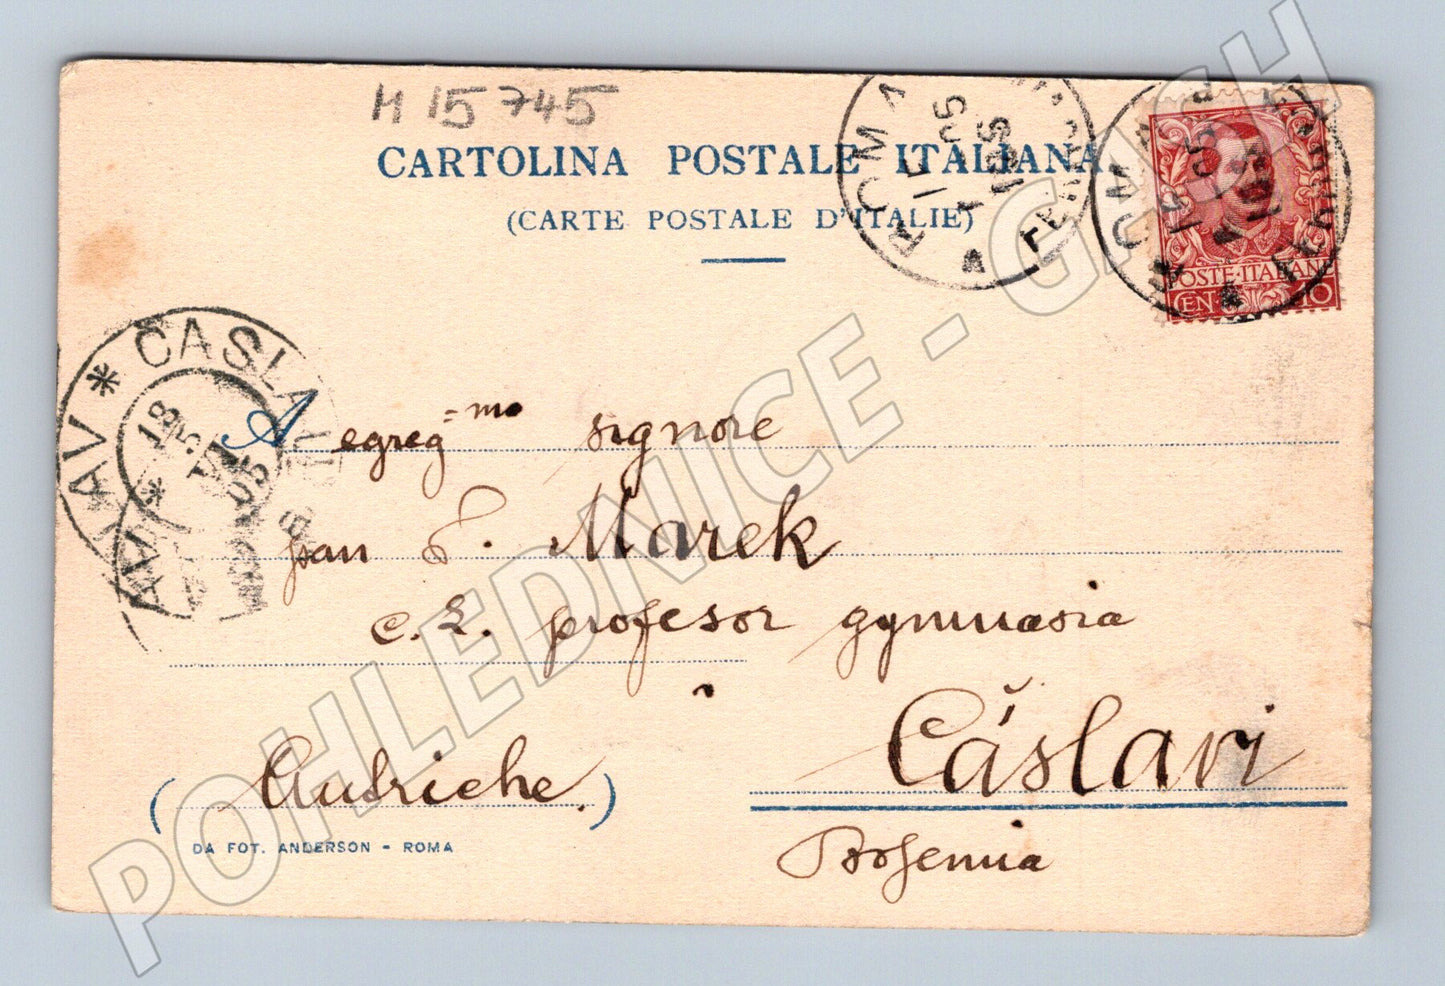 H 15745
CARTOLINA POSTALE ITALIANA.
(CARTE POSTALE D'ITALIE)
ROMA
ROMA
POSTE·ITALIANE
CEN 10
* CASLAV
ČÁSLAV *
18
5
VI
05
A egreg=mo signore
pan F. Marek
c. k. profesor gymnasia
Čáslavi
(Autriche.)
Bohemia
DA FOT. ANDERSON - ROMA
POHLEDNICE - GASH